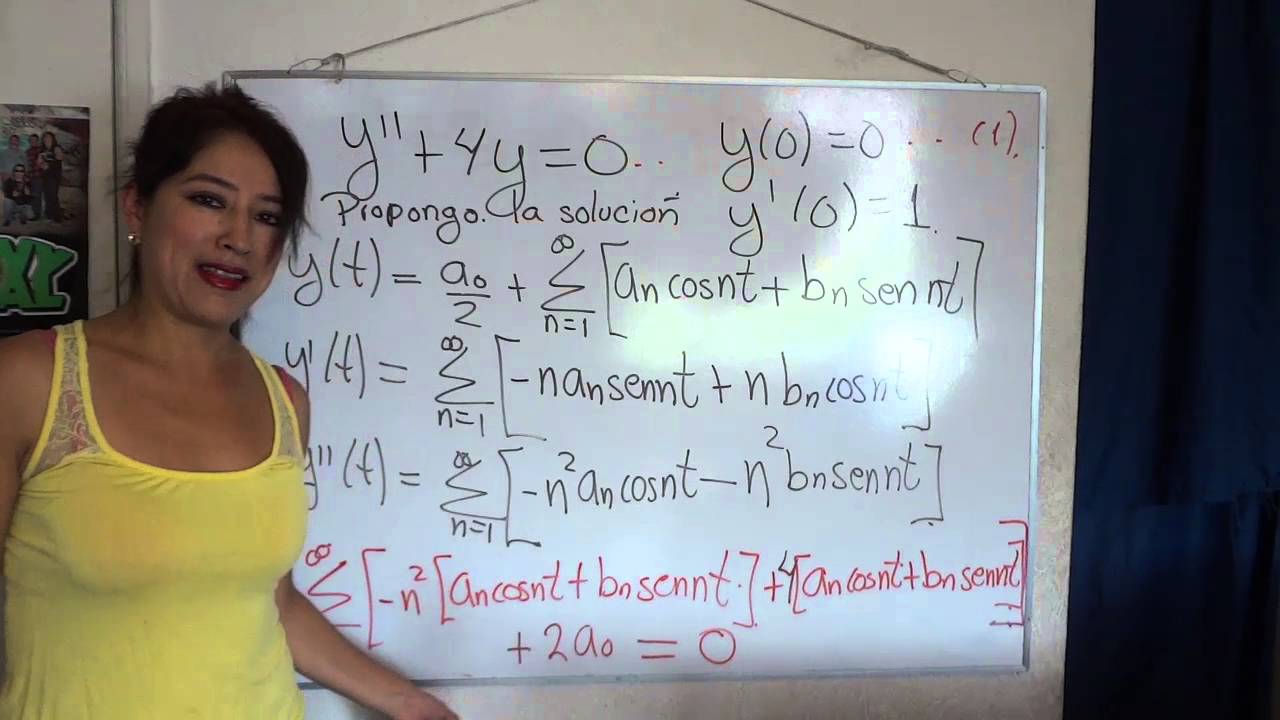 y''+4y=0.. y(0)=0 .. (1).
Propongo. la solución y'(0)=1.
y(t) = a₀/2 + ∞∑n=1 [aₙcosnt + bₙsennt]
y'(t) = ∞∑n=1 [-naₙsennt + nbₙcosnt]
y''(t) = ∞∑n=1 [-n²aₙcosnt - n²bₙsennt]
∞∑ [-n²[aₙcosnt + bₙsennt.] + 4[aₙcosnt + bₙsennt]]
+ 2a₀ = 0